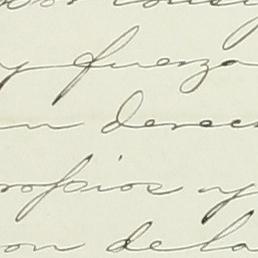 y fuerza
un derec
ropios y
on de la